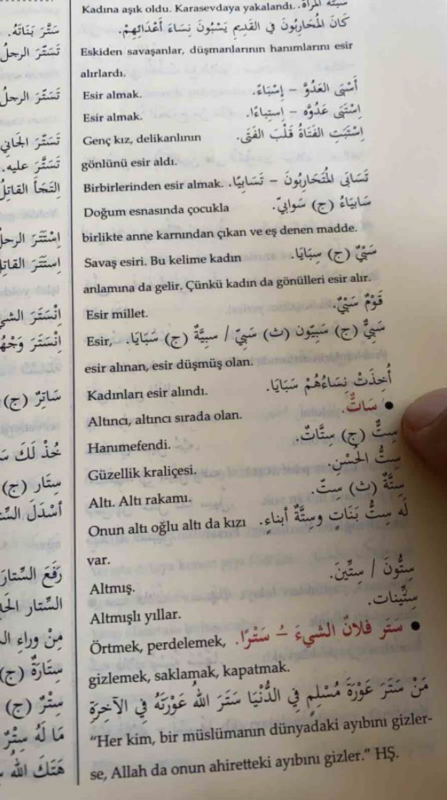 سَبَتْهُ المَرْأَةُ. Kadına aşık oldu. Karasevdaya yakalandı.
كَانَ المُحَارِبُونَ فِي القَدِيمِ يَسْبُونَ نِسَاءَ أَعْدَائِهِمْ.
Eskiden savaşanlar, düşmanlarının hanımlarını esir
alırlardı.
أَسْبَى العَدُوَّ – إِسْبَاءً. Esir almak.
اِسْتَبَى عَدُوَّهُ – اِسْتِبَاءً. Esir almak.
اِسْتَبَتِ الفَتَاةُ قَلْبَ الفَتَى. Genç kız, delikanlının
gönlünü esir aldı.
تَسَابَى المُتَحَارِبُونَ – تَسَابِيًا. Birbirlerinden esir almak.
سَابِيَاءُ (ج) سَوَابِي. Doğum esnasında çocukla
birlikte anne karnından çıkan ve eş denen madde.
سَبْيٌ (ج) سَبَايَا. Savaş esiri. Bu kelime kadın
anlamına da gelir. Çünkü kadın da gönülleri esir alır.
قَوْمٌ سَبْيٌ. Esir millet.
سَبِيٌّ (ج) سَبِيُّون (ث) سَبِيٌّ / سَبِيَّةٌ (ج) سَبَايَا. Esir,
esir alınan, esir düşmüş olan.
أُخِذَتْ نِسَاءُهُمْ سَبَايَا. Kadınları esir alındı.
• سَاتٌّ. Altıncı, altıncı sırada olan.
سِتٌّ (ج) سِتَّاتٌ. Hanımefendi.
سِتُّ الحُسْنِ. Güzellik kraliçesi.
سِتَّةٌ (ث) سِتٌّ. Altı. Altı rakamı.
لَهُ سِتُّ بَنَاتٍ وسِتَّةُ أبناءٍ. Onun altı oğlu altı da kızı
var.
سِتُّونَ / سِتِّينَ. Altmış.
سِتِّينات. Altmışlı yıllar.
• سَتَر فُلانٌ الشيءَ – سَتْرًا. Örtmek, perdelemek,
gizlemek, saklamak, kapatmak.
مَنْ سَتَرَ عَوْرَةَ مُسْلِمٍ فِي الدُّنْيَا سَتَرَ اللهُ عَوْرَتَهُ فِي الآخِرَةِ
“Her kim, bir müslümanın dünyadaki ayıbını gizler-
se, Allah da onun ahiretteki ayıbını gizler.” HŞ.
سَتَّرَ بَنَاتَهُ.
تَسَتَّرَ الرجلُ
تَسَتَّرَ الرجلُ
تَسَتَّرَ الجَانِي
تَسَتَّر عليه.
التَجَأ القاتِلُ
اِسْتَتَرَ الرجلُ
اِستَتَرَ القاتِلُ
اِنْسَتَرَ الشيءُ
اِنْسَتَرَ
سَاتِرٌ (ج)
خُذْ لَكَ
سِتَار (ج)
أسْدَلَ
رَفَعَ السِّتَارَ
السِّتَار
مِنْ وراءِ
سِتَارَةٌ (ج)
سِتْرٌ (ج)
مَا لَهُ سِتْرٌ
هَتَكَ اللهُ